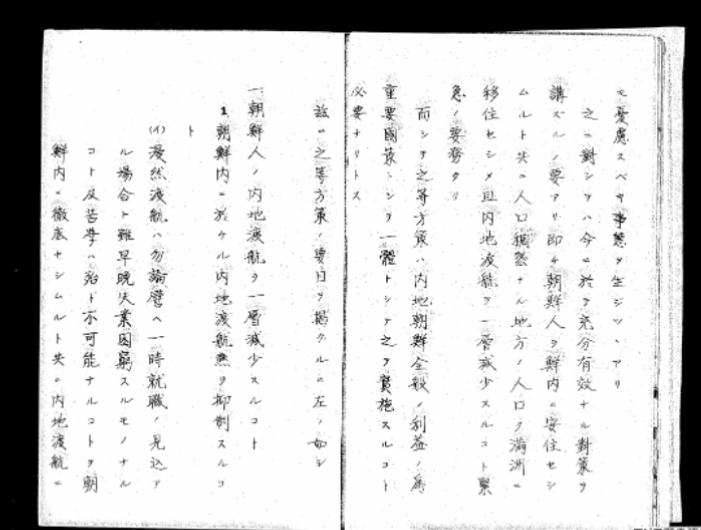 モ憂慮スベキ事態ヲ生ジツヽアリ
之ニ對シテハ今ニ於テ充分有效ナル對策ヲ
講ズルノ要アリ卽チ朝鮮人ヲ鮮內ニ安住セシ
ムルト共ニ人口稠密ナル地方ノ人口ヲ滿洲ニ
移住セシメ且內地渡航ヲ一層減少スルコト緊
急ノ要務タリ
而シテ之等方策ハ內地朝鮮全般ノ利益ノ爲
重要國策トシテ一體トシテ之ヲ實施スルコト
必要ナリトス
茲ニ之等方策ノ要目ヲ揭グルニ左ノ如シ
一、朝鮮人ノ內地渡航ヲ一層減少スルコト
1、朝鮮內ニ於ケル內地渡航熱ヲ抑制スルコ
ト
(イ)漫然渡航ハ勿論譬ヘ一時就職ノ見込ア
ル場合ト雖早晚失業困窮スルモノナル
コト及苦學ハ殆ド不可能ナルコトヲ朝
鮮內ニ徹底セシムルト共ニ內地渡航ニ